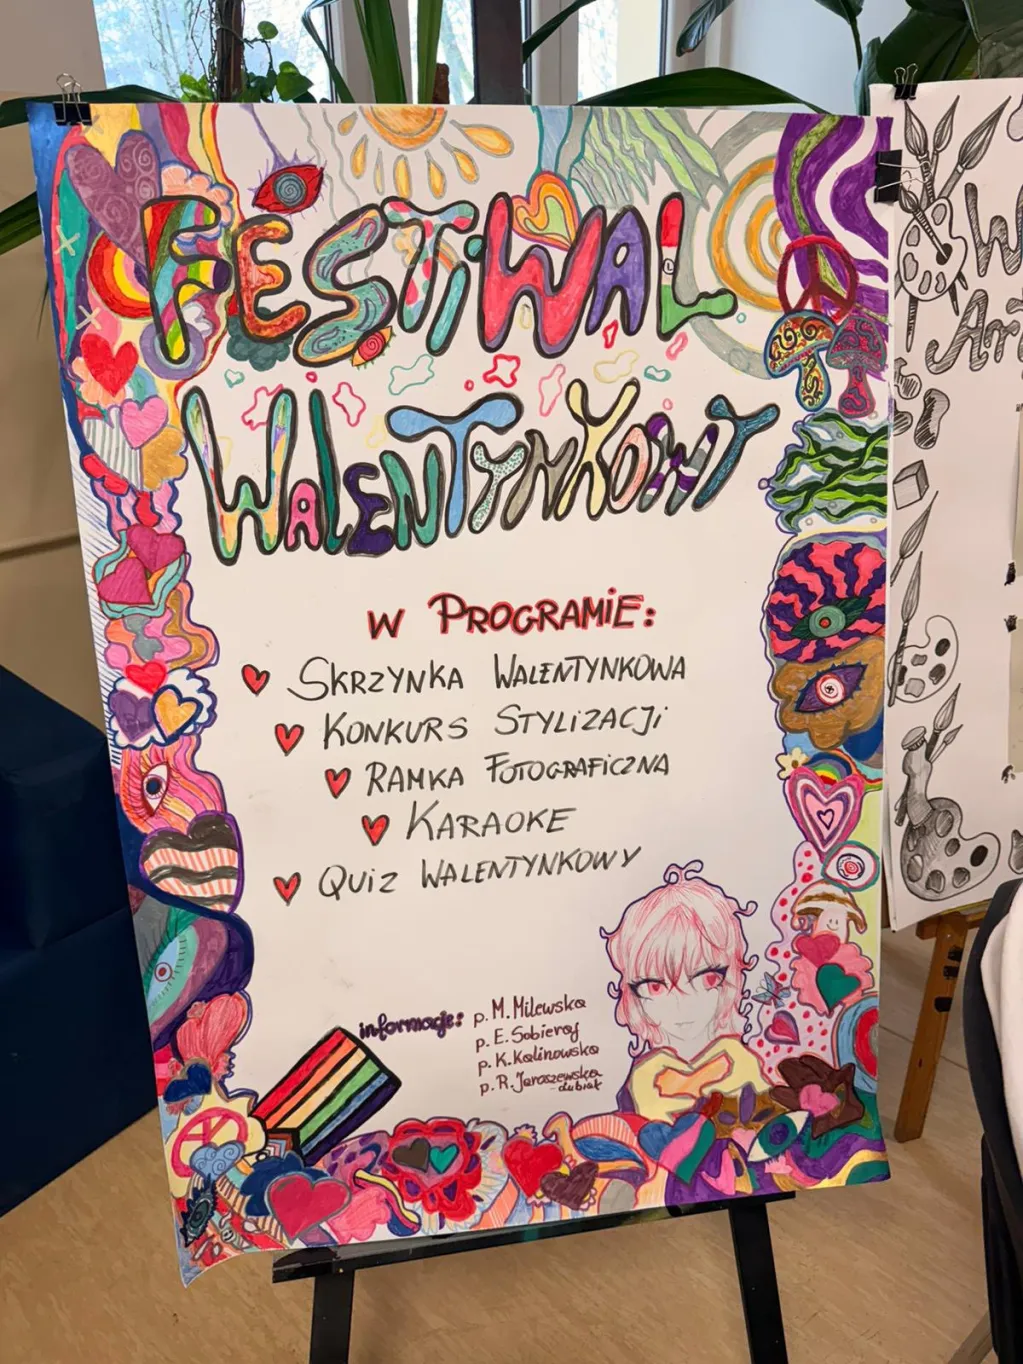 FESTIWAL
WALENTYNKOWY
W PROGRAMIE:
SKRZYNKA WALENTYNKOWA
KONKURS STYLIZACJI
RAMKA FOTOGRAFICZNA
KARAOKE
QUIZ WALENTYNKOWY
informacje: p. M. Milewska
p. E. Sobieraj
p. K. Kalinowska
p. R. Jaroszewska